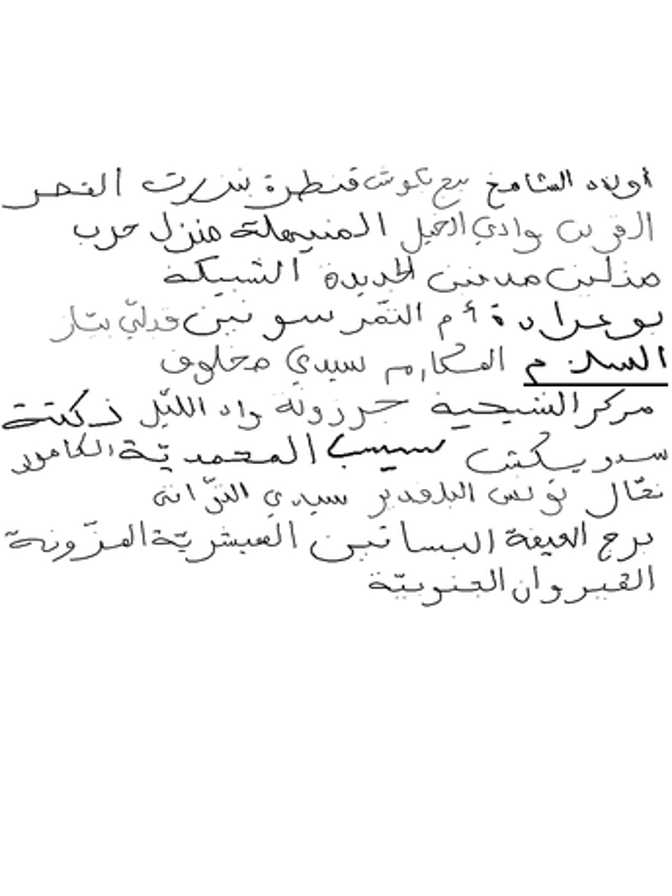 أولاد الشامخ بئر تكوش قنطرة بنزرت القصر
القرين وادي الخيل المنيهلة منزل حرب
مدنين الجديدة الشبيكة
بوعرادة أم التمر سونين قبلي بيتار
السلام المكارم سيدي مخلوف
مركز الشيحية جرزونة واد الليل زكتة
سيسب المحمدية الكامور
نقال تونس البلفدير سيدي التراتي
برج العيفة البساتين المبشرية المزونة
القيروان الجنوبية